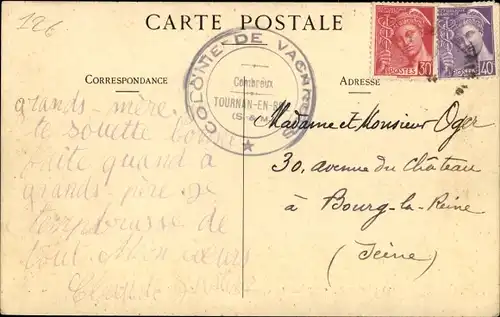 126
CARTE POSTALE
CORRESPONDANCE
ADRESSE
COLONIE DE VACANCES
Combreux
TOURNAN-EN-BRIE
(S & M)
POSTES 30
POSTES 40
grands-mère
te souette bonne
faite quand à
grands père je
l'embrasse de
tout Mon
Madame et Monsieur Oger
30, avenue du Château
à Bourg-la-Reine
(Seine)